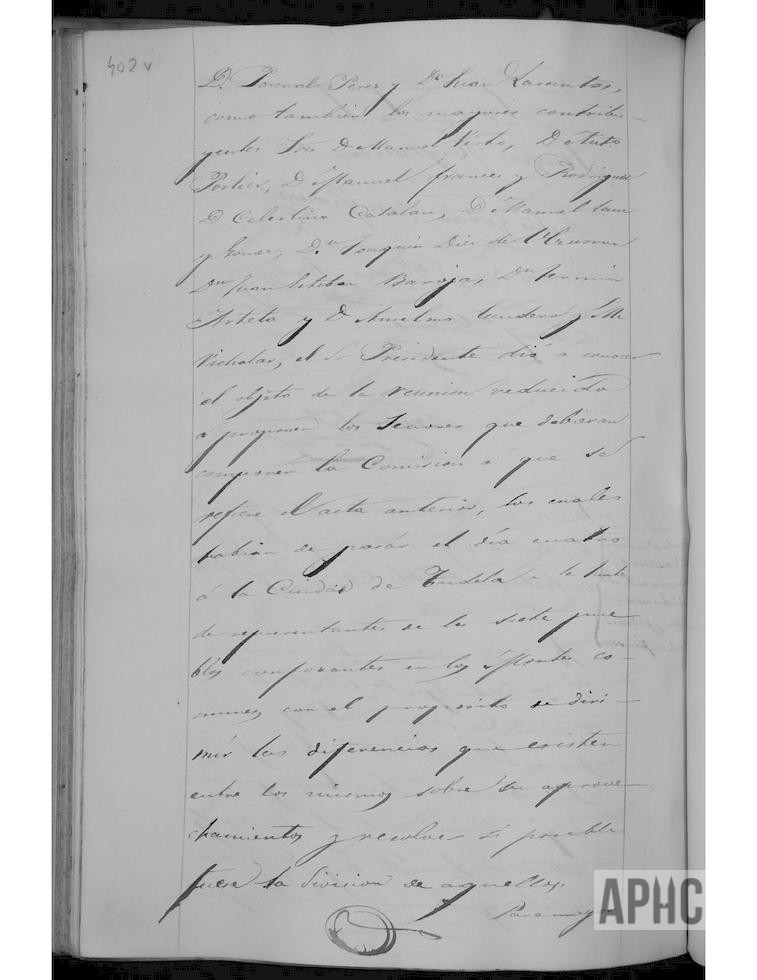 402 v
D. Pascual Perez y Dn Juan
como tambien los mayores contribu-
yentes Sres D Manuel Virto, D Tuto
Portier, D Manuel frances y Rodriguez
D Celestino Catalan, D Manuel
y Gomez, Dn Joaquin Diez de Ulzurrun
Dn Juan Esteban Baroja, Dn fermin
Arteta y D Anselmo y Mr
Nicholas, el Sr Presidente dió á conocer
el objeto de la reunion reducido
á proponer los Señores que debieran
componer la Comision á que se
refiere el acta anterior, los cuales
habian de pasar el día cuatro
á la Ciudad de Tudela a la Junta
de representantes de los siete pue
blos comporantes en los Montes co-
munes con el proposito de diri-
mir las diferencias que existen
entre los mismos sobre su aprove
chamientos y resolver si posible
fuese la division de aquellos.
Para
APHC